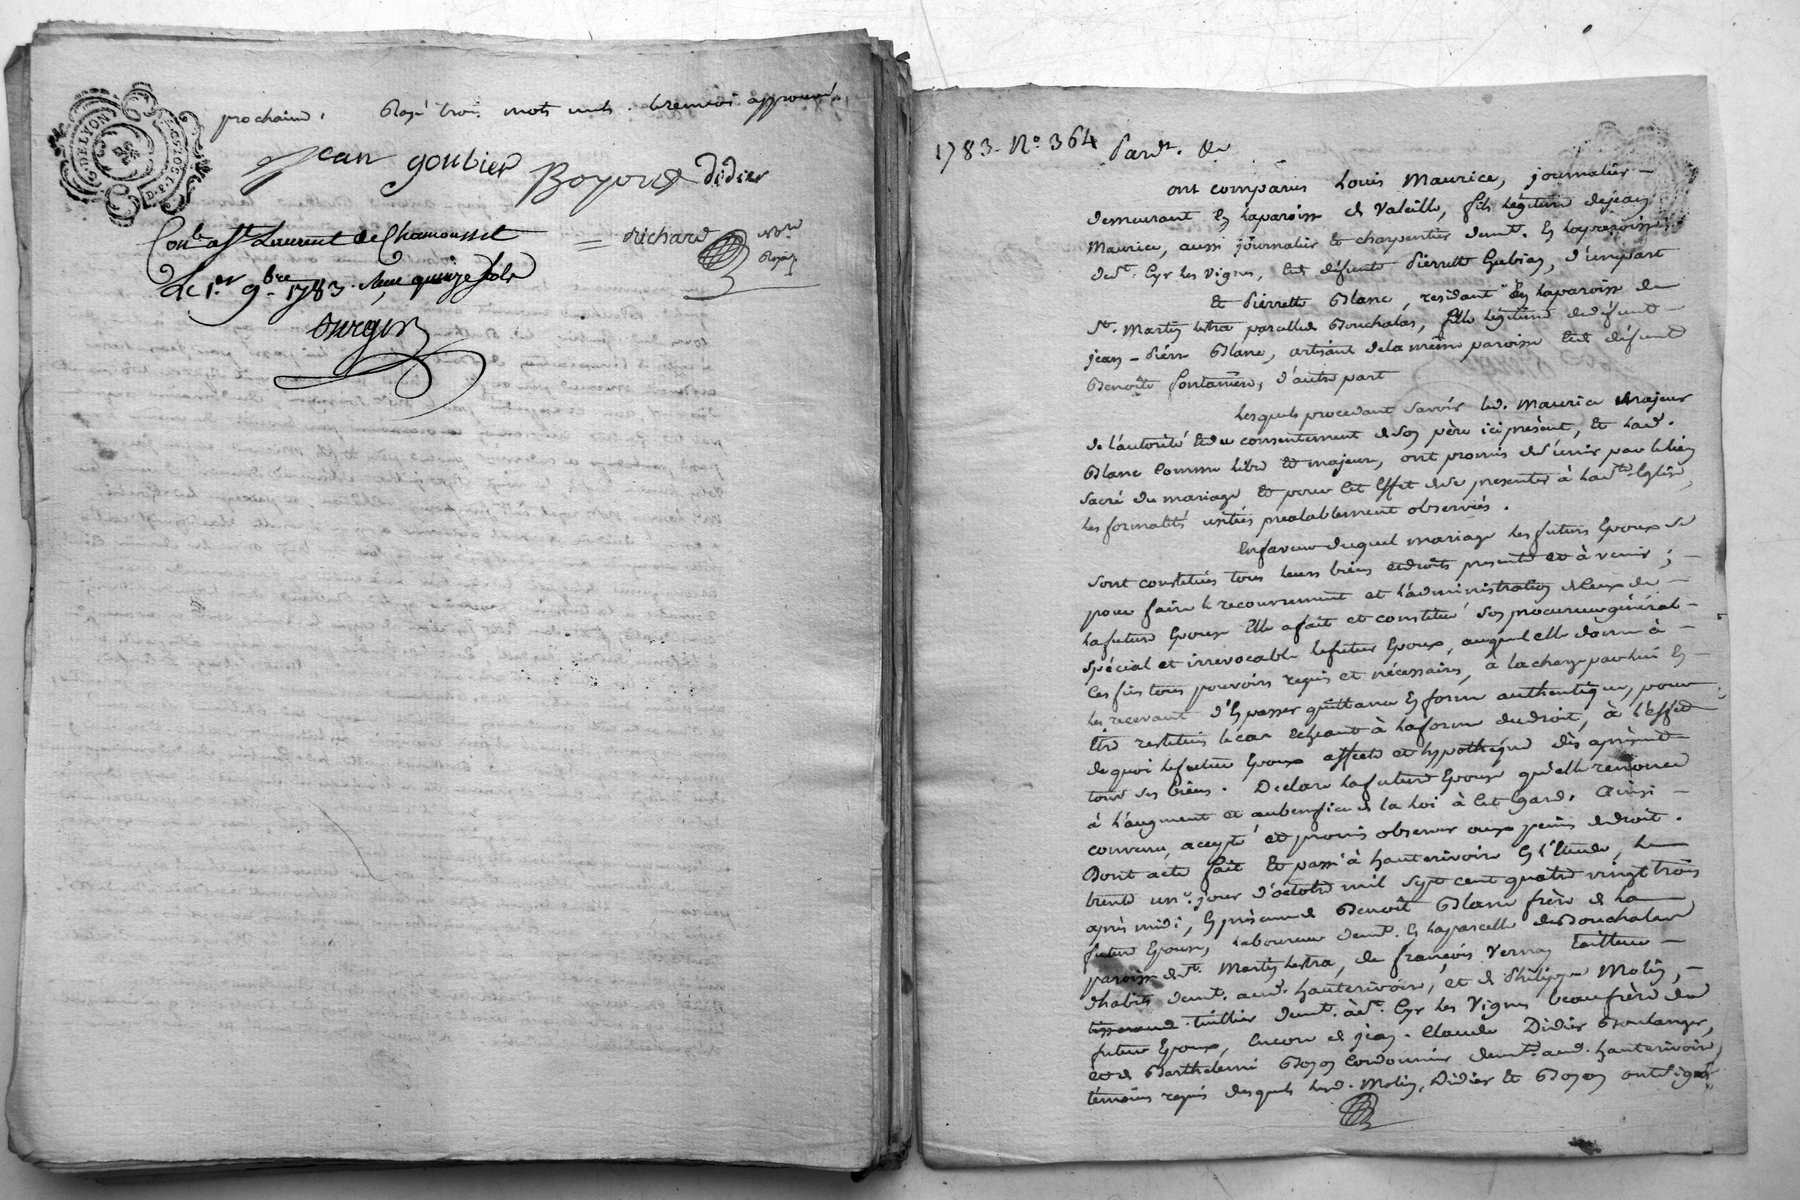 G. DE LYON
prochaine, Rayé trois mots nuls. le renvoi approuvé.
jean goubier Boyond didier
Con.le a St Laurent de Chamousset = Richard
Le 1.er 9.bre 1783. Reçu quinze sols
Surgin
1783. N.o 364 Pard.t &c
ont comparus Louis Maurice, journalier
demeurant en la paroisse de Valeille, fils légitime de jean
Maurice, aussi journalier et charpentier demt. en la paroisse
de St. Cyr les Vignes, et de défunte Pierrette Gubian, d'une part
Et Pierrette Blanc, residant en la paroisse de
St. Martin Lestra parcelle de Bouchalas, fille légitime de defunt
jean-Pierre Blanc, artisant de la même paroisse et de défunte
Benoite Fontanière, d'autre part
Lesquels procedant savoir led. Maurice majeur
de l'autorité et du consentement de son père ici présent, et lad.
Blanc comme libre et majeure, ont promis de s'unir par le lien
sacré du mariage et pour cet effet de se presenter à lad.te Eglise,
les formalités usitées prealablement observées.
En faveur duquel mariage les futurs Epoux se
sont constitués tous leurs biens et droits presents et à venir;
pour faire le recouvrement et l'administration de ceux de
la future Epouse Elle a fait et constitué son procureur général
spécial et irrevocable le futur Epoux, auquel elle donne à
ces fins tous pouvoirs requis et nécessaires, à la charge par lui en
les recevant d'en passer quittance en forme authentique, pour
être restitués le cas echeant à la forme du droit, à l'effet
de quoi le futur Epoux affecte et hypothéque dès aprésent
tous ses biens. Declare la future Epouse qu'elle renonce
à l'augment et au benefice de la loi à cet egard. Ainsi
convenu, accepté et promis observer aux peines de droit.
Dont acte fait et passé à hauterivoire en l'Etude, le
trente un.e jour d'octobre mil sept cent quatre vingt trois
après midi, en présence de Benoît Blanc frère de la
future Epouse, laboureur demt. en la parcelle de Bouchalas
paroisse de St. Martin Lestra, de françois Vernay tailleur
d'habits demt. aud. hauterivoire, et de Philippe Molin,
tisserand tuillier demt. à St. Cyr les Vignes beaufrère du
futur Epoux, encore de jean-Claude Didier Boulanger,
et de Barthelemi Boyon Cordonnier demt. aud. hauterivoire,
témoins requis desquels lesd. Molin, Didier et Boyon ont signé